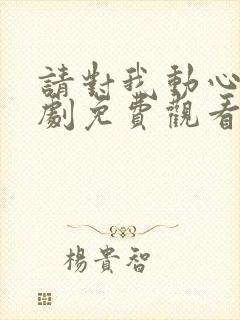 請對我動心
劇免費觀看
楊貴智